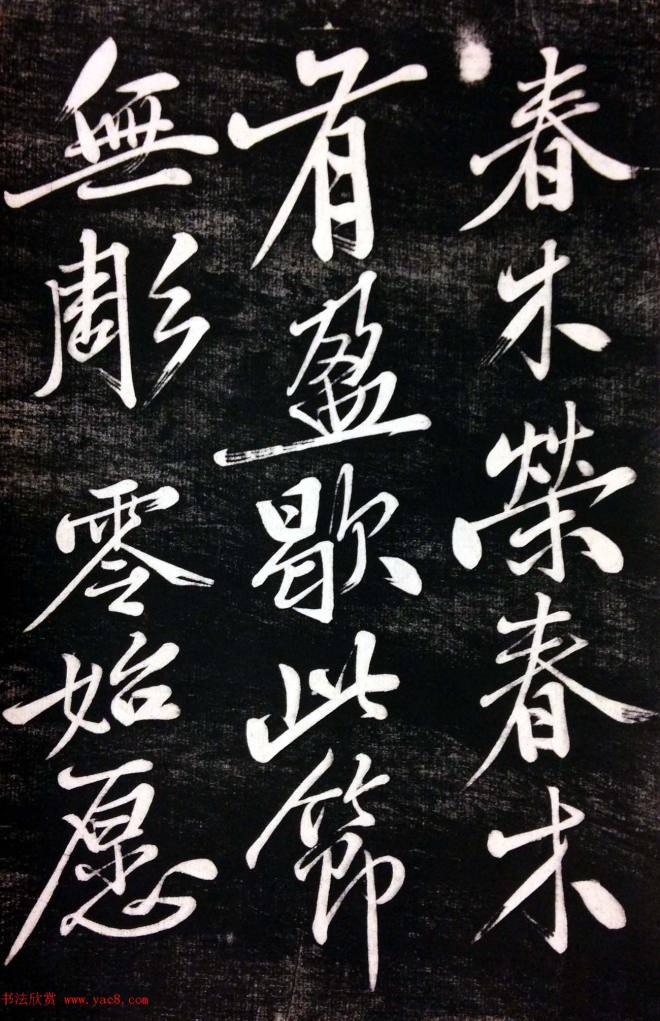 春木榮春木
有盈歇此節
無彫零始愿
书法欣赏 www.yac8.com